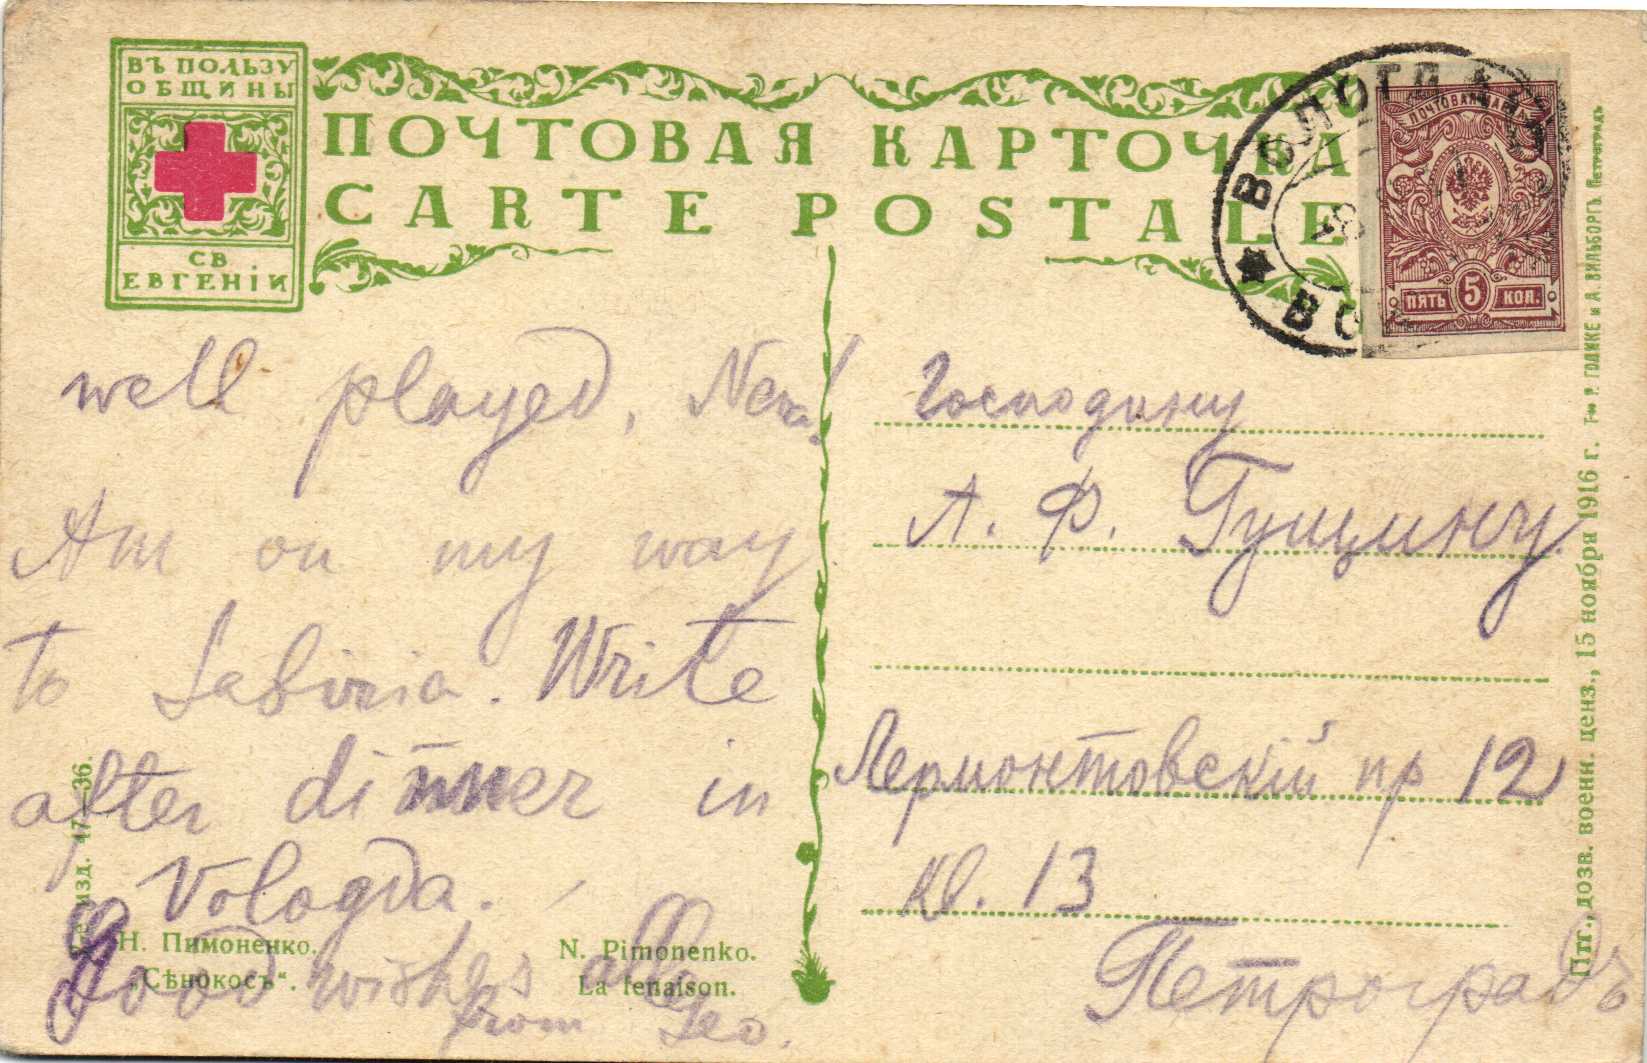 ВЪ ПОЛЬЗУ
ОБЩИНЫ
СВ
ЕВГЕНІИ
ПОЧТОВАЯ КАРТОЧКА
CARTE POSTALE
ВОЛОГДА
ПОЧТОВАЯ МАРКА
ПЯТЬ 5 КОП.
well played,
Am on my way
to Sabiria. Write
after dinner in
Vologda.
Good wishes
from Leo.
Господину
А. Ф. Гущину
Лермонтовскій пр 12
кв. 13
Петроградъ
Н. Пимоненко.
„Сѣнокосъ“.
N. Pimonenko.
La fenaison.
изд. 47—36.
Птг., дозв. воен. ценз., 15 ноября 1916 г. Т-во Р. ГОЛИКЕ и А. ВИЛЬБОРГЪ. Петроградъ